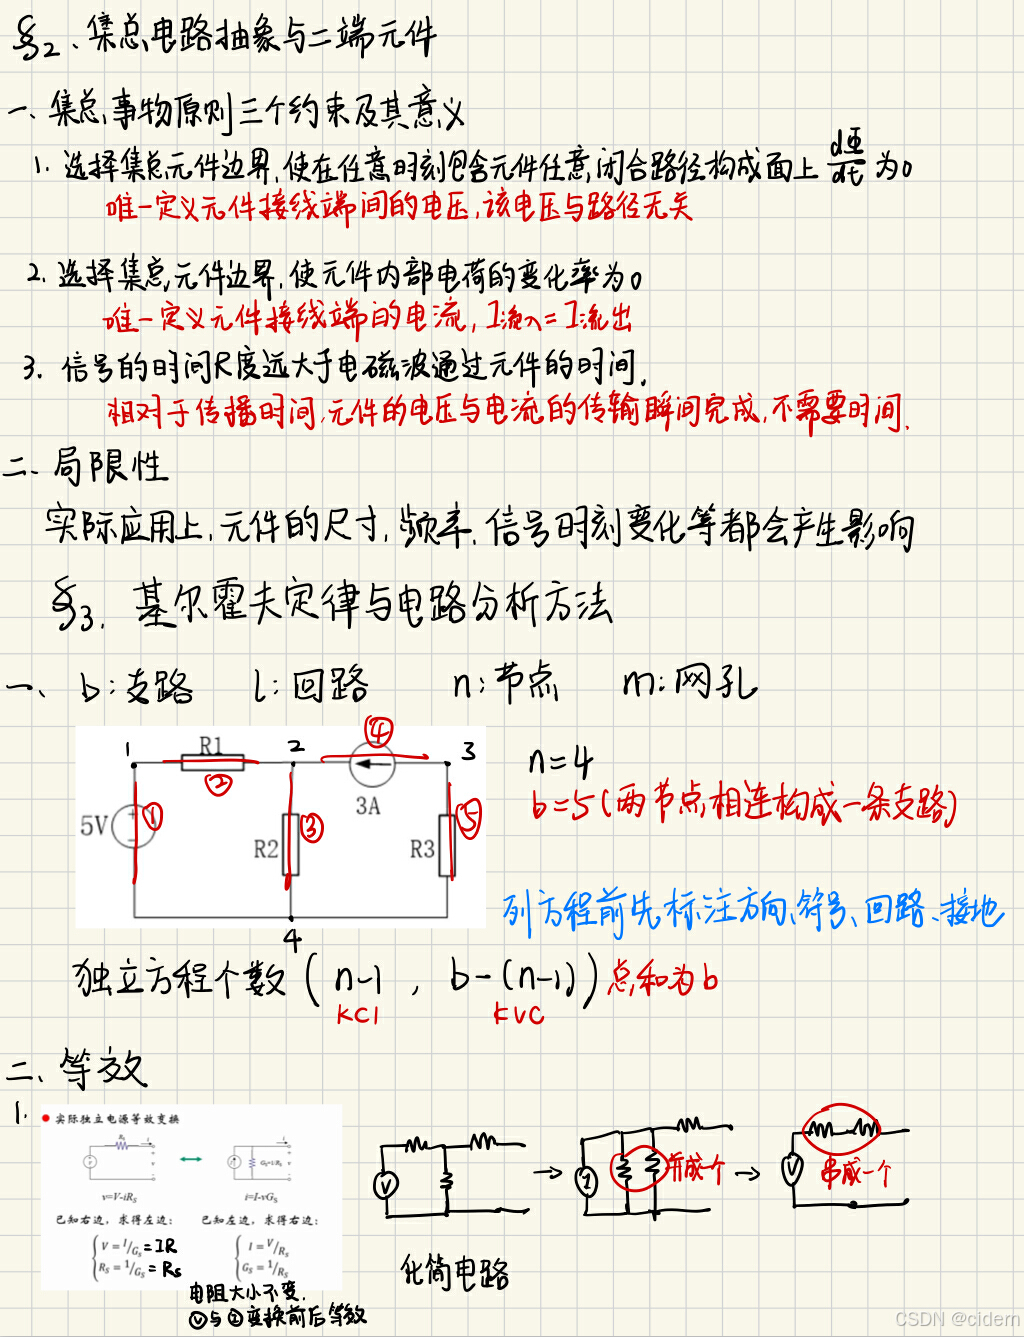 §2、集总电路抽象与二端元件
一、集总事物原则三个约束及其意义
1. 选择集总元件边界,使在任意时刻包含元件任意闭合路径构成面上 dΦ/dt 为0
唯一定义元件接线端间的电压,该电压与路径无关
2. 选择集总元件边界,使元件内部电荷的变化率为0
唯一定义元件接线端的电流,I流入=I流出
3. 信号的时间尺度远大于电磁波通过元件的时间.
相对于传播时间,元件的电压与电流的传输瞬间完成,不需要时间.
二、局限性
实际应用上,元件的尺寸,频率,信号时刻变化等都会产生影响
§3. 基尔霍夫定律与电路分析方法
一、 b:支路 l:回路 n:节点 m:网孔
1 R1 2 ④ 3
②
3A
5V ① R2 ③ R3 ⑤
4
n=4
b=5(两节点相连构成一条支路)
列方程前先标注方向、符号、回路、接地
独立方程个数(n-1 , b-(n-1))总和为b
KCl KVC
二、等效
1.
实际独立电源等效变换
v=V-iRs i=I-vGs
已知右边,求得左边: 已知左边,求得右边:
V=I/Gs=IR I=V/Rs
Rs=1/Gs=Rs Gs=1/Rs
电阻大小不变.
Ⓥ与Ⓘ变换前后等效
V → I 并成一个 → V 串成一个
化简电路
CSDN @cidern